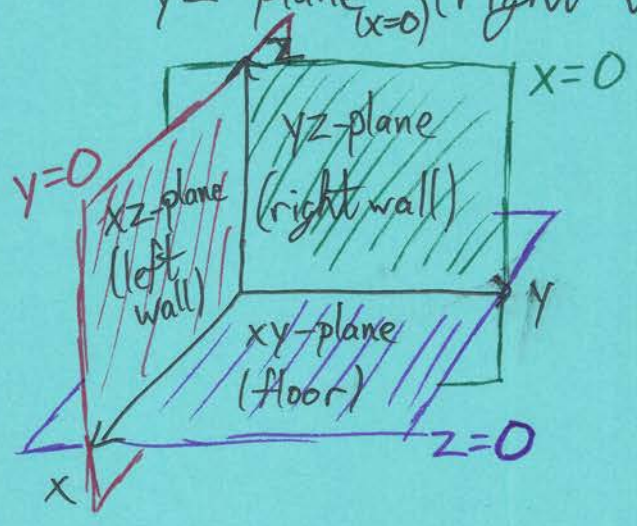 yz-plane (right
(x=0)
z
x=0
yz-plane
(right wall)
y=0
xz-plane
(left
wall)
y
xy-plane
(floor)
z=0
x